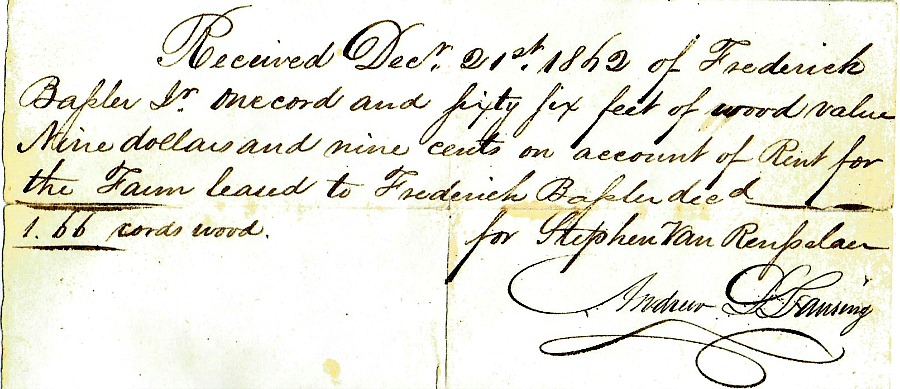 Received Decr. 21st. 1862 of Frederick
Baſsler Jr. one cord and ſixty ſix feet of wood value
Nine dollars and nine cents on account of Rent for
the Farm leased to Frederick Baſsler decd
1.66 cords wood. for Stephen Van Renſselaer
Andrew D. Lansing